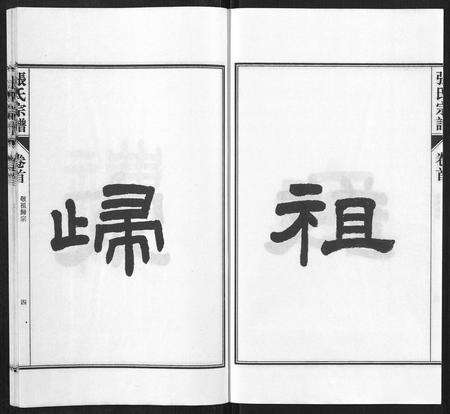 張氏宗譜
卷首
祖
歸
張氏宗譜
卷首
敬祖歸宗
四